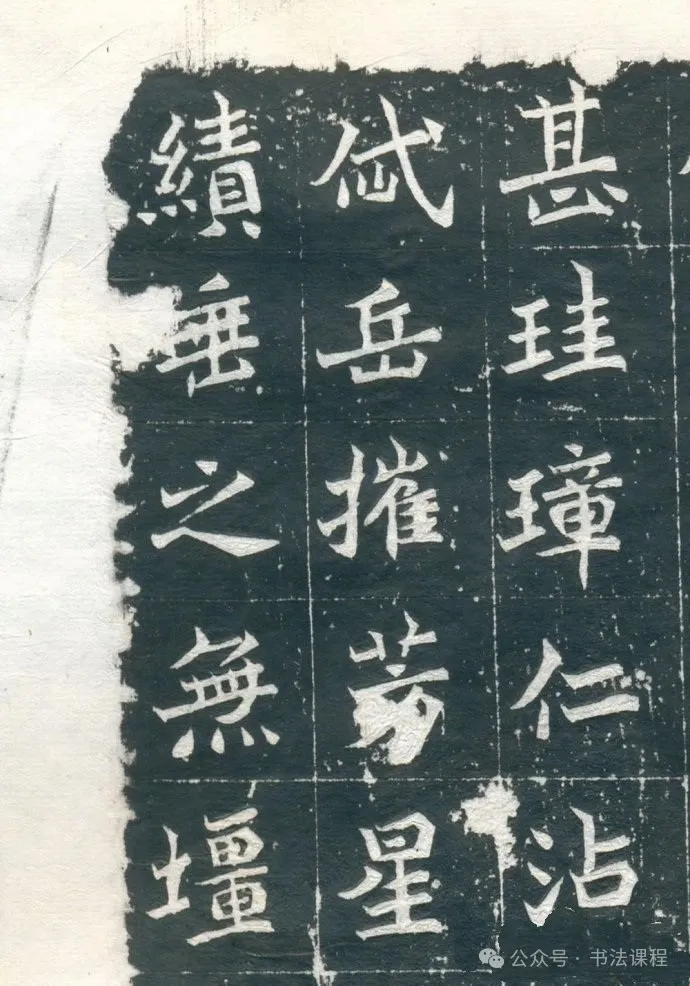 甚珪璋仁沾
岱岳摧芳星
績垂之無壃
公众号 · 书法课程